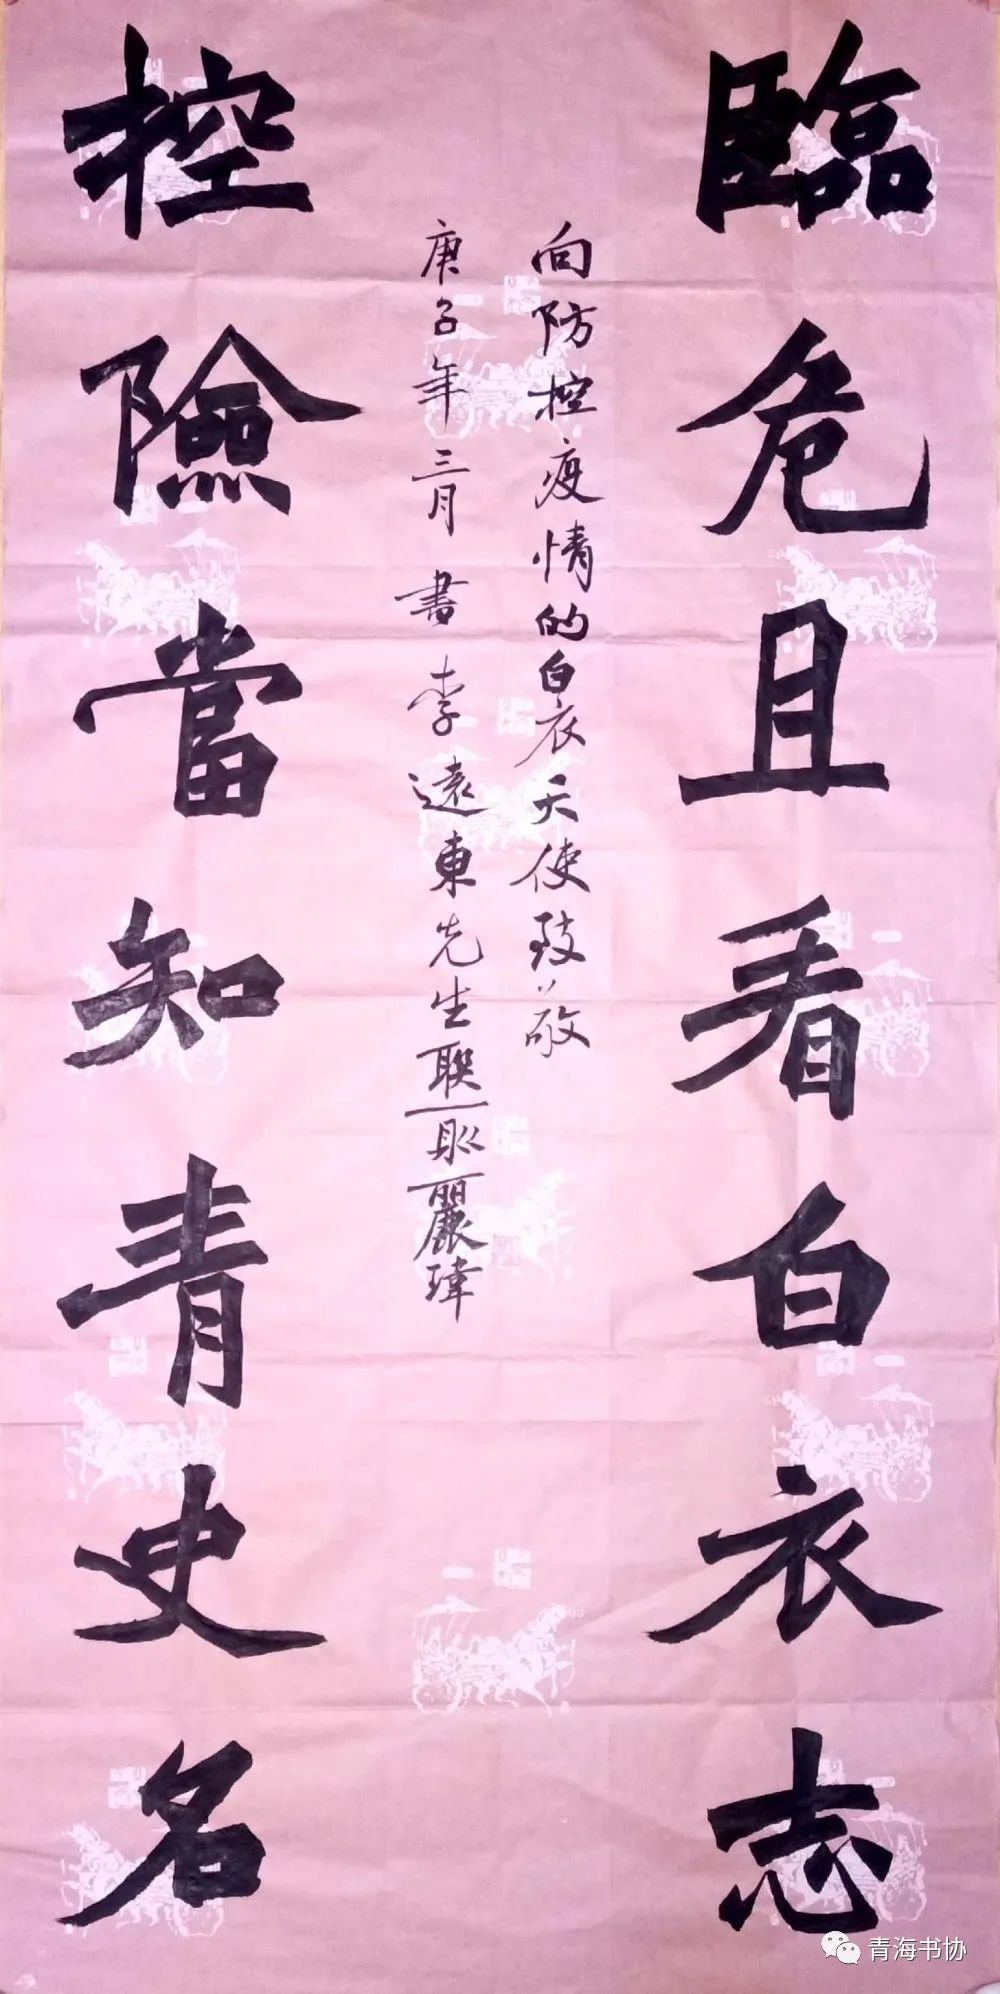 臨危且看白衣志
向防控疫情的白衣天使致敬
庚子年三月書李遠東先生聯耿麗瑋
控險當知青史名
青海书协